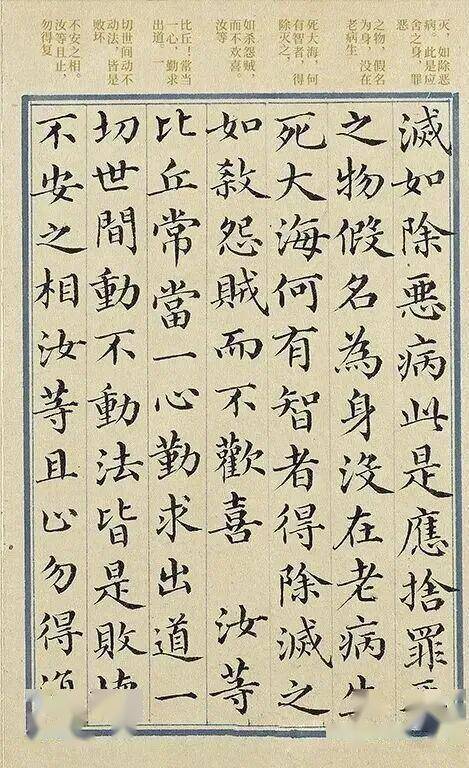 灭，如除恶
病。此是应
舍之身，罪
恶
之物，假名
为身，没在
老病生
死大海，何
有智者，得
除灭之。
如杀怨贼，
而不欢喜。
汝等
比丘！常当
一心，勤求
出道。一
切世间动不
动法，皆是
败坏
不安之相。
汝等且止，
勿得复
滅如除惡病此是應捨罪
之物假名為身沒在老病生
死大海何有智者得除滅之
如殺怨賊而不歡喜 汝等
比丘常當一心勤求出道一
切世間動不動法皆是敗
不安之相汝等且止勿得